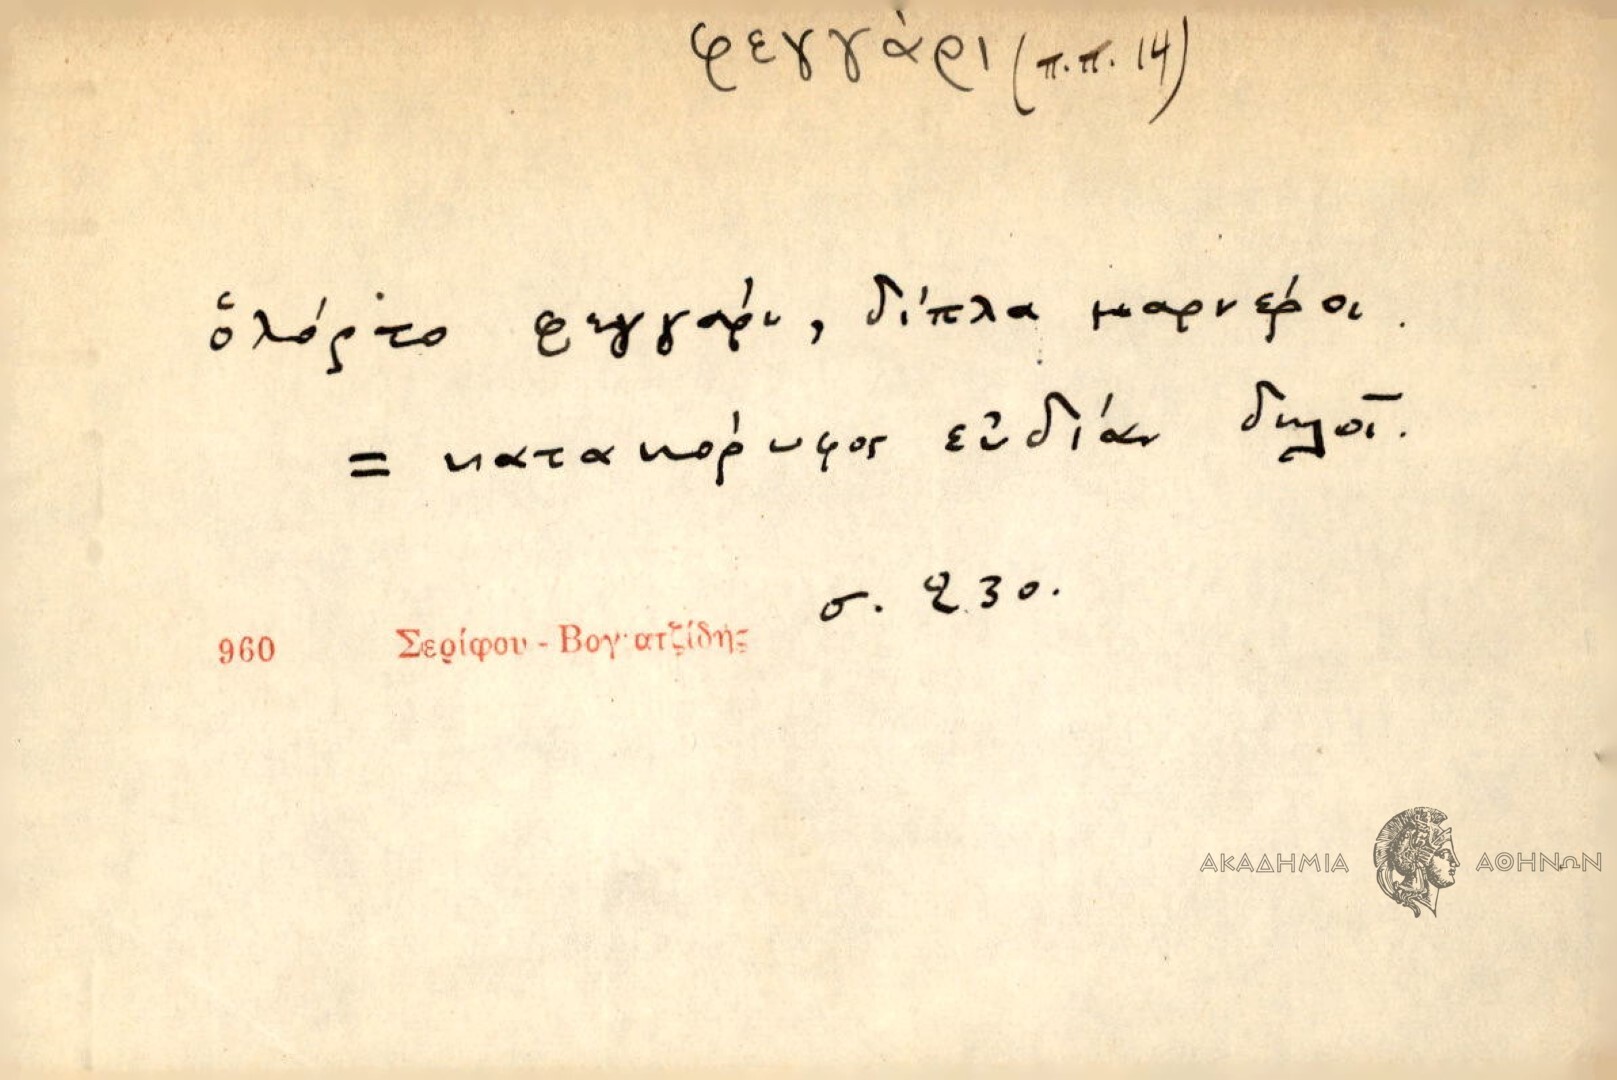 φεγγάρι (π.π. 14)
ὁλόρτο φεγγάρι, δίπλα μαρνέροι.
= κατακόρυφος εὐδίαν δηλοῖ.
σ. 230.
960 Σερίφου - Βογιατζίδης
ΑΚΑΔΗΜΙΑ ΑΘΗΝΩΝ